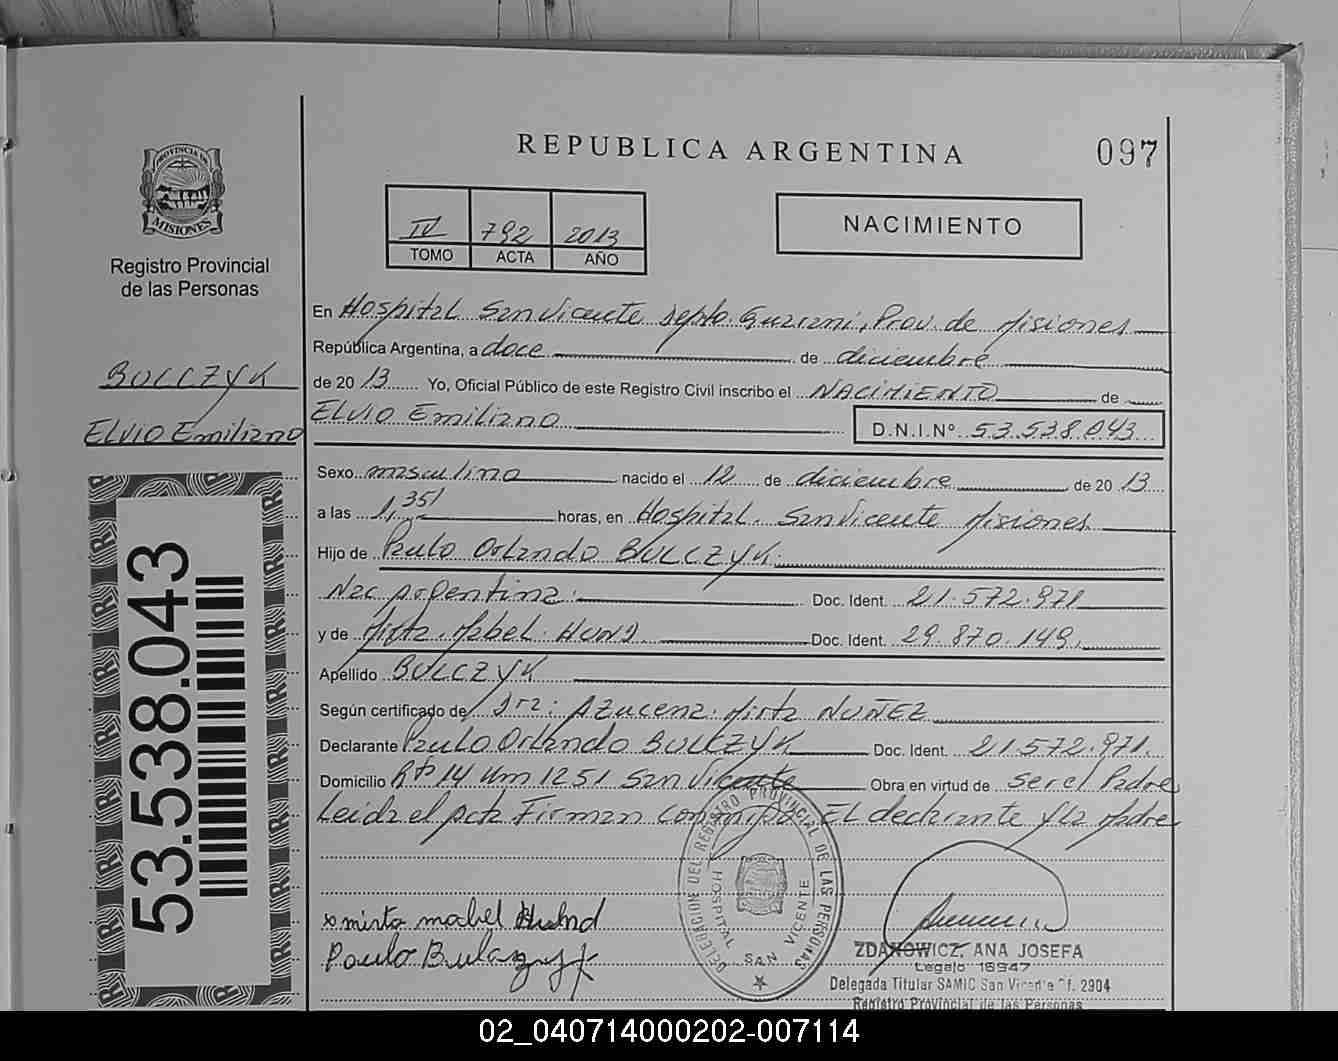 REPUBLICA ARGENTINA
097
PROVINCIA DE
MISIONES
Registro Provincial
de las Personas
IV 792 2013
TOMO ACTA AÑO
NACIMIENTO
En Hospital San Vicente Depto. Guaraní, Prov. de Misiones
República Argentina, a doce de diciembre
de 20 13 Yo, Oficial Público de este Registro Civil inscribo el NACIMIENTO de
BULCZYK
ELVIO Emiliano
ELVIO Emiliano D.N.I.Nº 53.538.043
Sexo masculino nacido el 12 de diciembre de 20 13
a las 1,35 horas, en Hospital. San Vicente Misiones
Hijo de Paulo Orlando BULCZYK.
Nac Argentina. Doc. Ident. 21.572.971
y de Mirta. Mabel. HUND Doc. Ident. 29.870.149.
Apellido BULCZYK
Según certificado de Dra: Azucena. Mirta NUÑEZ
Declarante Paulo Orlando BULCZYK Doc. Ident. 21.572.971.
Domicilio Rta 14 Km 1251 San Vicente Obra en virtud de Ser el Padre
Leida el acta Firman conmigo. EL declarante y La Madre
53.538.043
mirta mabel Hund
Paulo Bulczyk
DELEGACION DEL REGISTRO PROVINCIAL DE LAS PERSONAS
HOSPITAL SAN VICENTE
ZDANOWICZ, ANA JOSEFA
Legajo 16947
Delegada Titular SAMIC San Vicente Of. 2904
Registro Provincial de las Personas
02_040714000202-007114